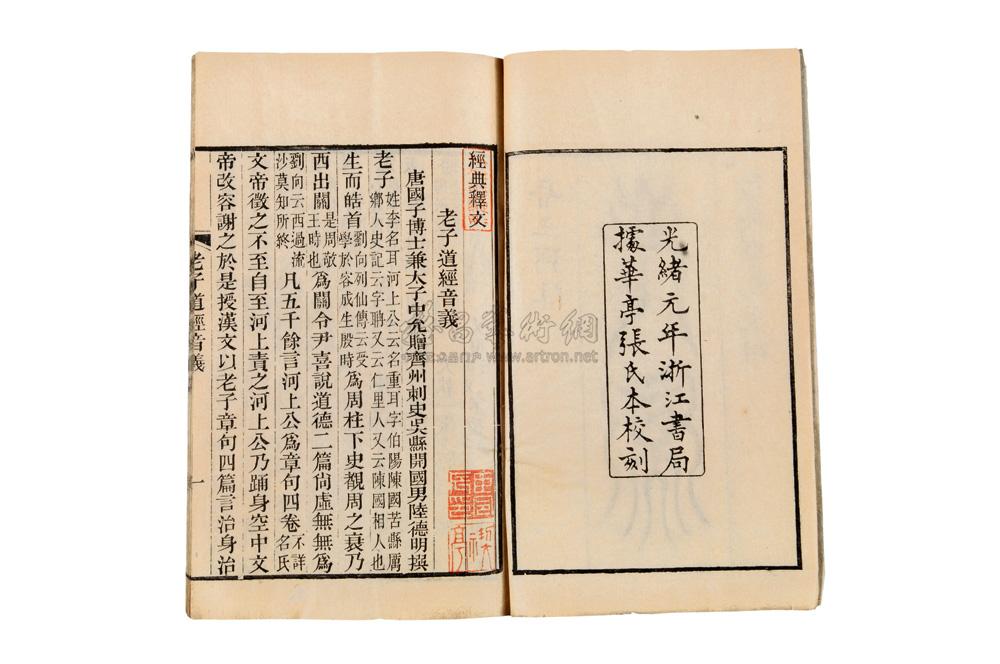 光緒元年浙江書局
據華亭張氏本校刻
經典釋文
老子道經音義
唐國子博士兼太子中允贈齊州刺史吳縣開國男陸德明撰
老子姓李名耳河上公云名重耳字伯陽陳國苦縣厲
鄉人史記云字聃又云仁里人又云陳國相人也
生而皓首劉向列仙傳云受
學於容成生殷時爲周柱下史覩周之衰乃
西出關是周敬
王時也爲關令尹喜說道德二篇尙虛無無爲
劉向云西過流
沙莫知所終凡五千餘言河上公爲章句四卷不詳
名氏
文帝徵之不至自至河上責之河上公乃踊身空中文
帝改容謝之於是授漢文以老子章句四篇言治身治
老子道經音義
一
www.artron.net